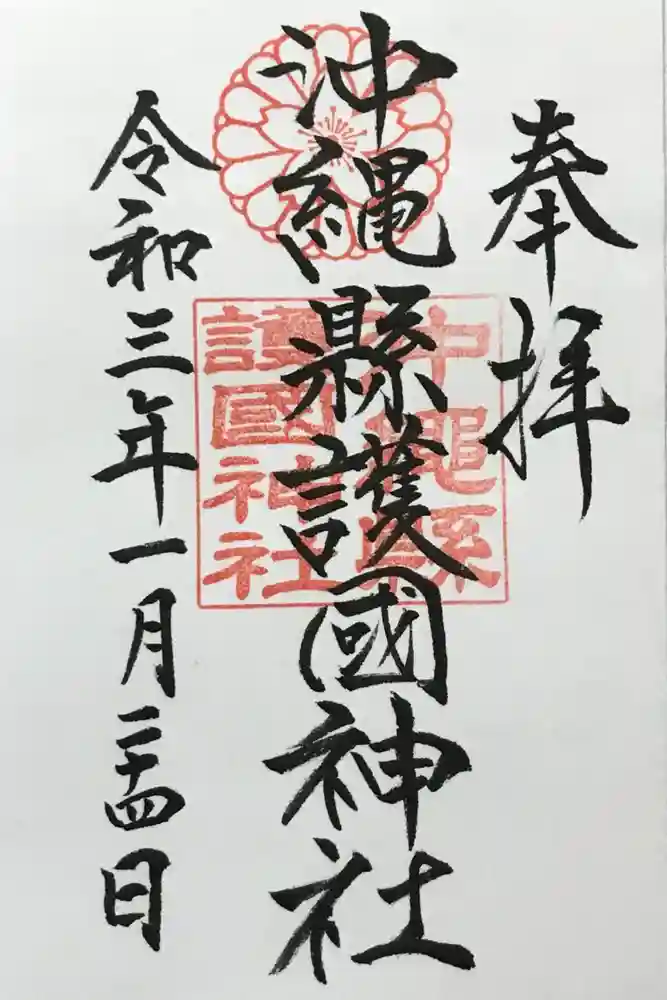 奉拝
沖縄縣護國神社
沖繩縣
護國神社
令和三年一月二十四日